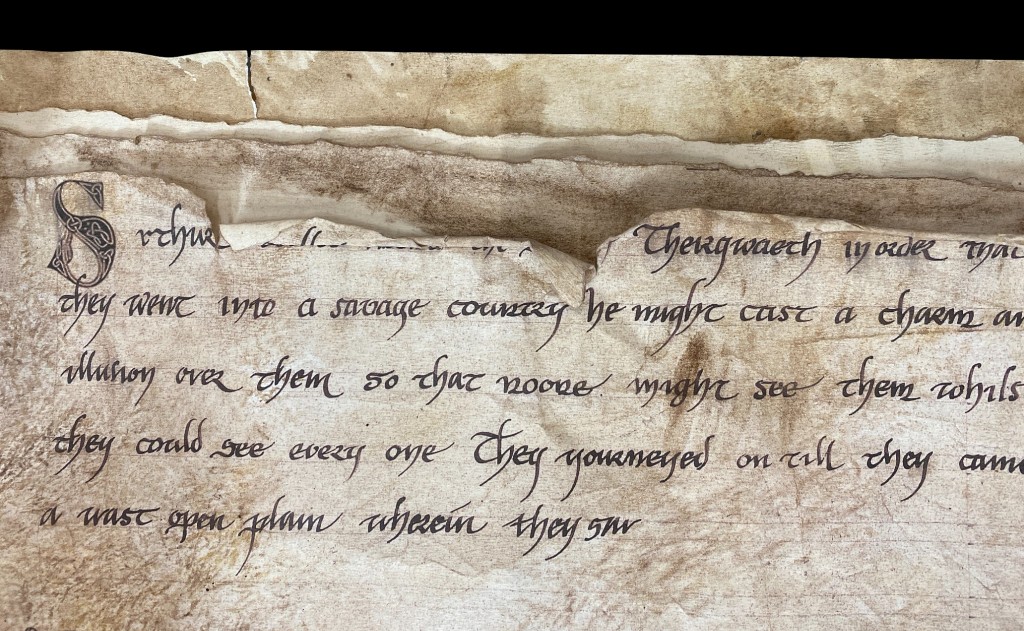 S rthur Thergwaeth in order that
they went into a savage country he might cast a charm an
illusion over them so that noone might see them whils
they could see every one They yourneyed on till they came
a vast open plain wherein they saw